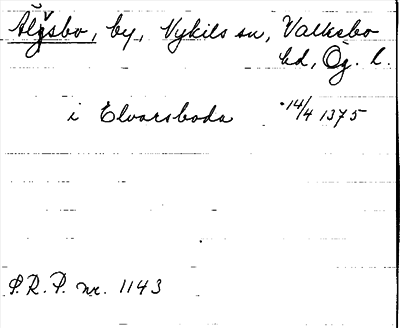 Älgsbo, by, Vykils sn, Valkebo
hd, Ög. l.
i Elvarsboda 14/4 1375
S.R.P. nr. 1143